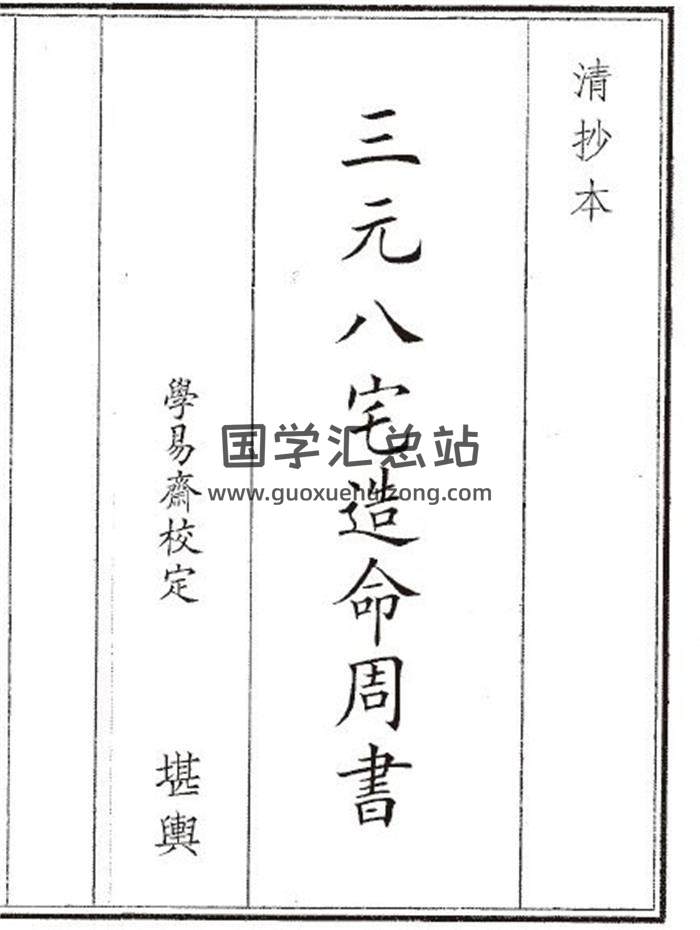 清抄本
三元八宅造命周書
學易齋校定
堪輿
国学汇总站
www.guoxuehuizong.com